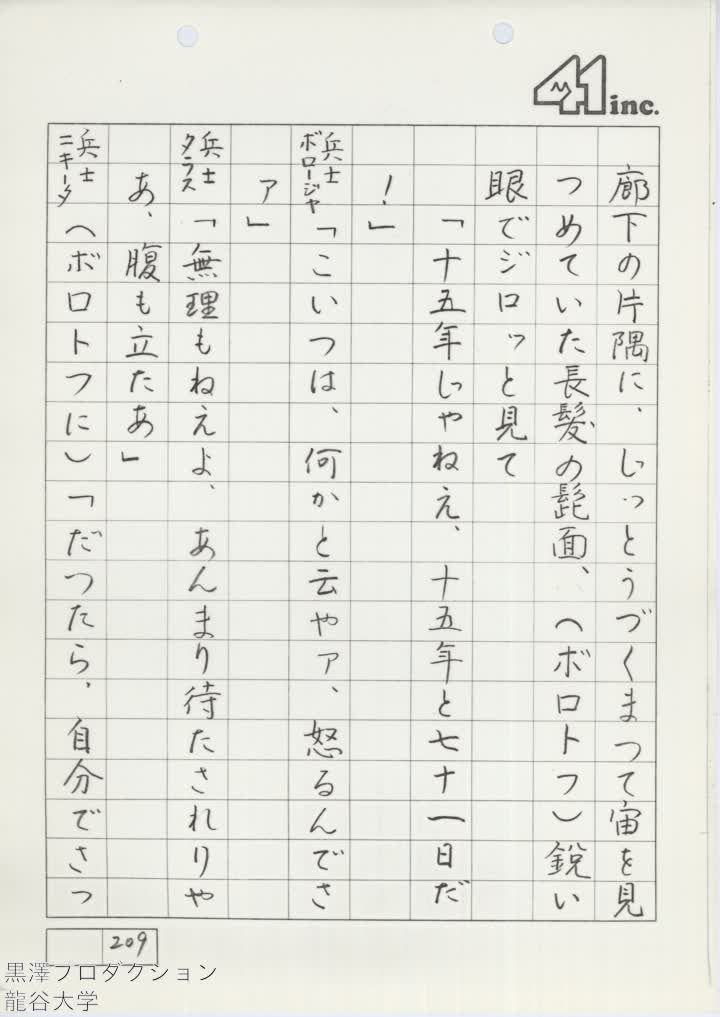 41 inc.
廊下の片隅に、じっとうづくまつて宙を見
つめていた長髪の髭面、（ボロトフ）鋭い
眼でジロッと見て
「十五年じゃねえ、十五年と七十一日だ
！」
兵士ボロージャ「こいつは、何かと云やァ、怒るんでさ
ァ」
兵士タラス「無理もねえよ、あんまり待たされりや
あ、腹も立たあ」
兵士ニキータ（ボロトフに）「だつたら、自分でさっ
209
黒澤プロダクション
龍谷大学